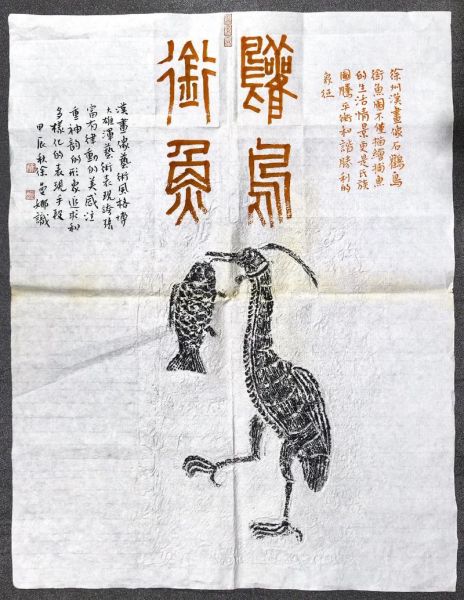 鸛鳥
銜魚
徐州漢畫像石鸛鳥
銜魚圖不僅描繪捕魚
的生活情景更是民族
圖騰平衡和諧勝利的
象征
漢畫像藝術風格博
大雄渾藝術表現誇張
富有律動的美感注
重神韵的形象追求和
多樣化的表現手段
甲辰秋娜識